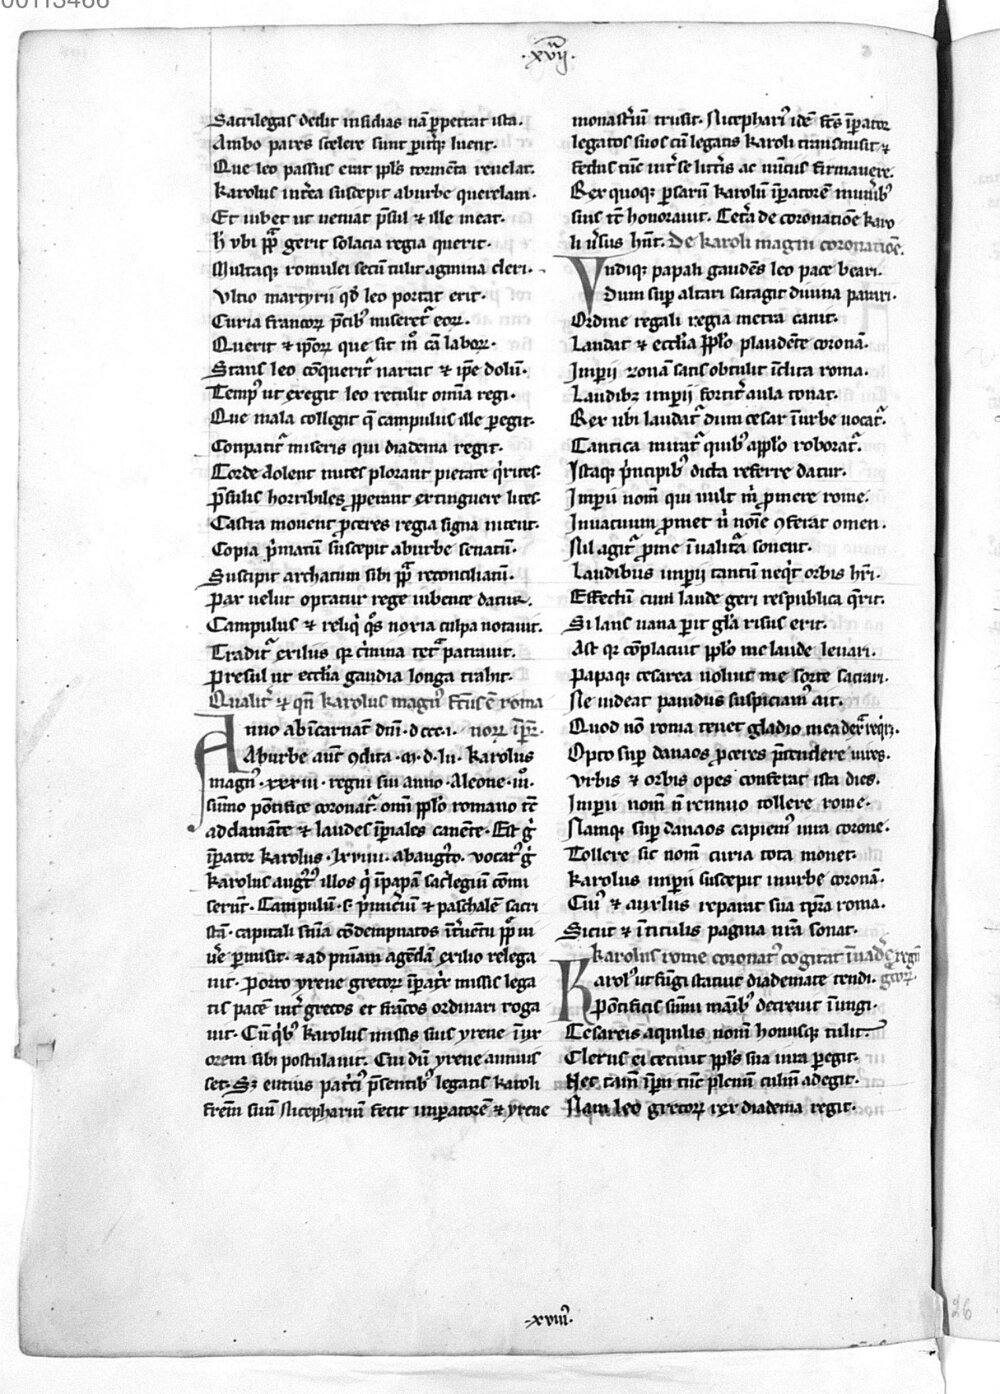 00113466
·xvij·
Sacrilegas dedit insidias nā ꝑpetrat ista.
Ambo pares scelere sunt ꝑitq̃ luent.
Que leo passus erat ppl̃s tormēta reuelat.
Karolus int̃ea suscepit aburbe querelam.
Et iubet ut ueniat p̃sul ⁊ ille meat.
h̃ ubi pp̃ gerit solacia regia querit.
Multaq; romulei secū tulit agmina cleri.
Vltio martyrii qd̃ leo portat erit.
Curia francoꝝ p̃cib; miseret̃ eoꝝ.
Querit ⁊ ip̃oꝝ que sit m̊ cā laboꝝ.
Stans leo cōquerit̃ narrat ⁊ ip̃e dolū.
Temp⁹ ut exegit leo retulit om̄ia regi.
Que mala collegit q̄ campulus ille ꝑegit.
Conpatit̃ miseris qui diadema regit.
Corde dolent mites plorant pietate q̇rites.
p̃sulis horribiles ꝓperant extinguere lites.
Castra mouent ꝓceres regia signa nitent.
Copia p̃matū suscepit aburbe senatū.
Suscipit archatum sibi pp̃ reconciliatū.
Pax uelut optatur rege iubente datur.
Campulus ⁊ reliq̇ q̊s noxia culpa notauit.
Tradit̃ exilus qr c̃mina tet̃ patrauit.
Presul ut eccl̃ia gaudia longa trahit.
Qualit̃ ⁊ qn̄ karolus magn⁹ fct̃us ē roma
noꝝ īp̃r.
Anno abīcarnat̃ dn̄i· d ccc· i·
Aburbe aut̃ ꝯdita· ꝏ· d· lii· Karolus
magn⁹· xxxiii· regni sui anno· Aleone· iii̊·
sūmo pōtifice coronat̃ om̄i ppl̃o romano t̃ē
adclamāte ⁊ laudes īp̃iales canēte· Est g̊
īp̃ator karolus· lxviiii· abaug̃to· vocat⁹ g̊
karolus aug̃t⁹ illos q̇ īpapam sac̃legiū cōmi
serūt· Campulū· s· p̃miciū ⁊ paschalē sacri
stā· capitali sn̄ia cōdempnatos īt̃uētu pp̃ iu
ue p̃misit· ⁊ ad pn̄iam agēdā exilio relega
uit· Porro yrene grecoꝝ īp̃at̃x missis lega
tis pacē int̃ grecos et frācos ordinari roga
uit· Cū q̇b⁹ karolus missis suis yrene īux
orem sibi postulauit. Cui dū yrene annuis
set· Sꝫ eutius pat̃ci⁹ p̃sentib⁹ legatis karoli
fr̄em suū Nicephariū fecit imꝑatorē ⁊ yrene
monast̃iū trusit. Nicephari⁹ idē fct̃s īp̃ator
legatos suos cū legatis karoli transmisit ⁊
fedus tūc int̃ se litt̃is ac nūtiis firmauere.
Rex quoq; ꝑsarū karolū īp̃atorē munib⁹
suis t̃ē honorauit. Cet̃a de coronatiōe karo
li u̇sus hn̄t. De karoli magni coronatiōe.
Vndiq; papali gaudēs leo pace beari.
Dum suꝑ altari satagit diuina patrari.
Ordine regali regia metra canit.
Laudat ⁊ eccl̃ia ppl̃o plaudēte coronā.
Imperii zonā satis obtulit īclita roma.
Laudibꝫ imperii fortit̃ aula tonat.
Rex ubi laudat̃ dum cesar īurbe uocat̃.
Cantica mirat̃ quib⁹ appl̃o roborat̃.
Istaq; p̃ncipib⁹ dicta referre datur.
Imperii nom̄ qui uult m̊ p̃mere rome.
Inuacuum p̃met n̊ nōie ꝯferat omen.
Nil agit̃ ꝓme īualit̃a sonent.
Laudibus imperii tantū neq̇t orbis hr̃i.
Effectū cum laude geri respublica q̃rit.
Si laus uana ꝑit gl̃a risus erit.
Ast qr cōplacuit ppl̃o me laude leuari.
Papaq; cesarea uoluit me sorte sacrari.
Ne uideat pauidus suspiciam̃ ait.
Quod nō roma tenet gladio mea dext̃a req̇rꝫ.
Opto suꝑ danaos ꝓceres p̃tendere uires.
Vrbis ⁊ orbis opes conferat ista dies.
Imperii nom̄ n̄ rennuo tollere rome.
Namq; suꝑ danaos capiem⁹ iura corone.
Tollere sic nom̄ curia tota monet.
Karolus imperii suscepit inurbe coronā.
Cui⁹ ⁊ auxilius reparat sua tp̃ra roma.
Sicut ⁊ ītitulis pagina nr̃a sonat.
Karolus rome coronat⁹ cogitat īuad̃e regn̄
gcoꝝ.
Karol⁹ ut sūgi statuit diademate tendi.
Pōtificis sūmi man̄ib⁹ decreuit īungi.
Cesareis aquilis nom̄ honusq; tulit.
Clerus ei cecinit ppl̃s sua iura ꝑegit.
Nec tam̄ īp̃ii tūc plenū culm̄ adegit.
Nam leo grecoꝝ rex diadema regit.
·xviii·
26